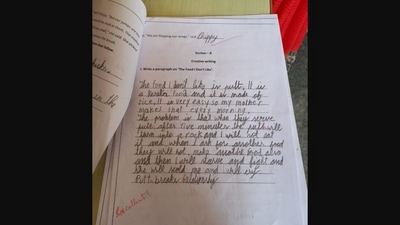 Section - B
Creative writing
1. Write a paragraph on 'The Food I Don't Like'.
The food I don't like is puttu. It is
a kerala food and it is made of
rice. It is very easy so my mother
makes that every morning.
The problem is that when they serve
puttu after five minutes the puttu will
turn into a rock and I will not eat
it and when I ask for another food
they will not make another food also
and then I will starve and fight and
she will scold me and I will cry
Puttu breaks relationship
Excellent!